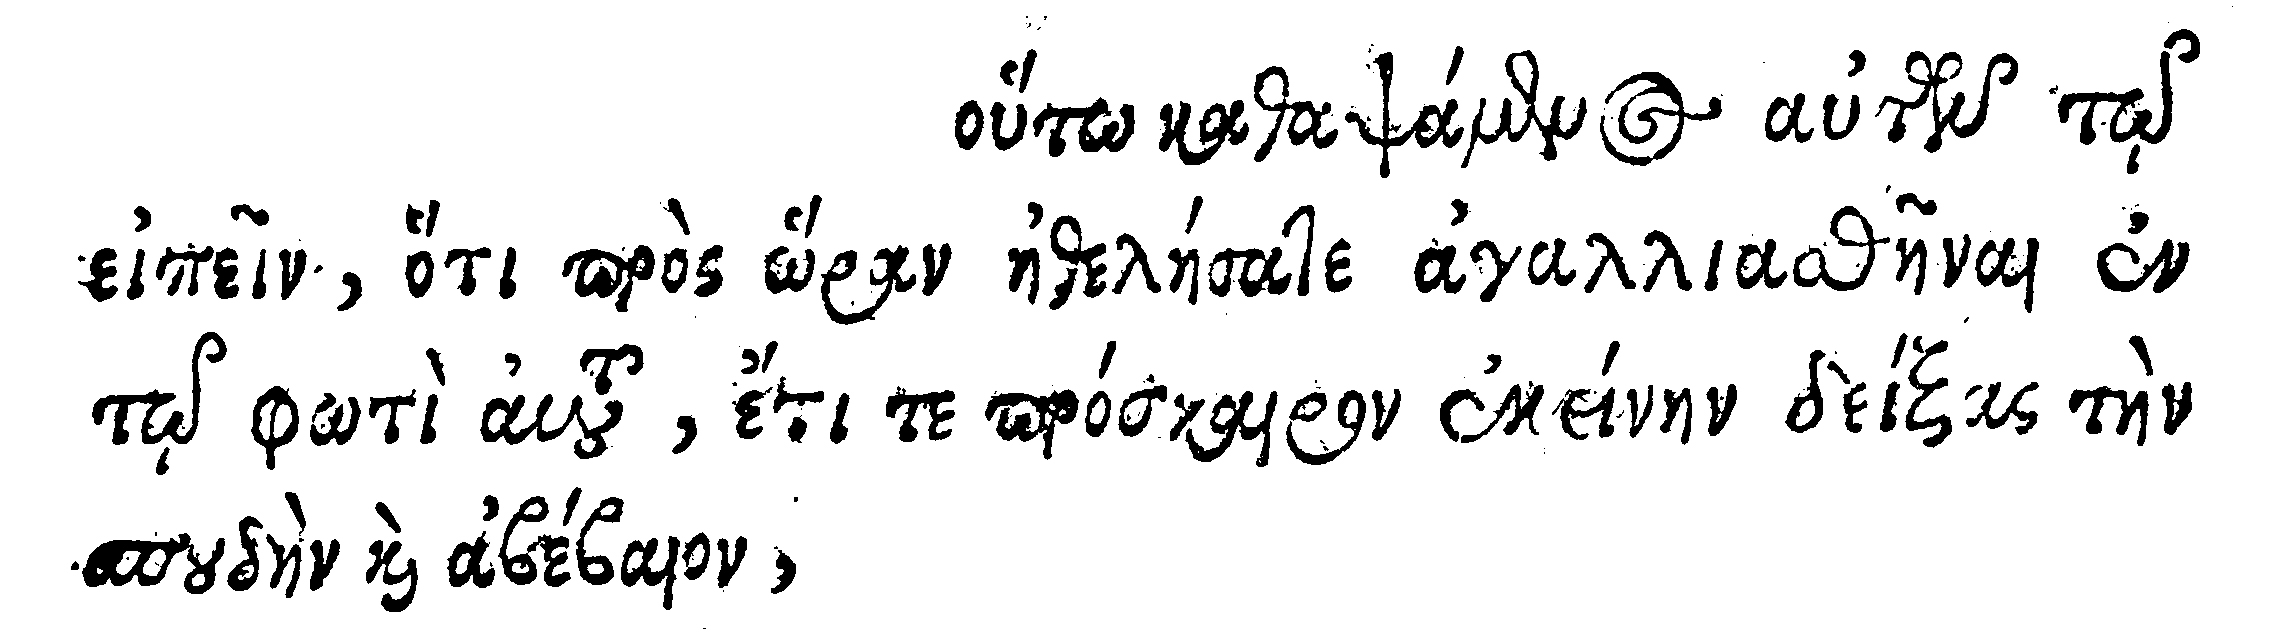 οὕτω καθαψάμενος αὐτῶν τῷ
εἰπεῖν, ὅτι πρὸς ὥραν ἠθελήσατε ἀγαλλιασθῆναι ἐν
τῷ φωτὶ αὐτοῦ, ἔτι τε πρόσκαιρον ἐκείνην δείξας τὴν
σπουδὴν καὶ ἀβέβαιον,